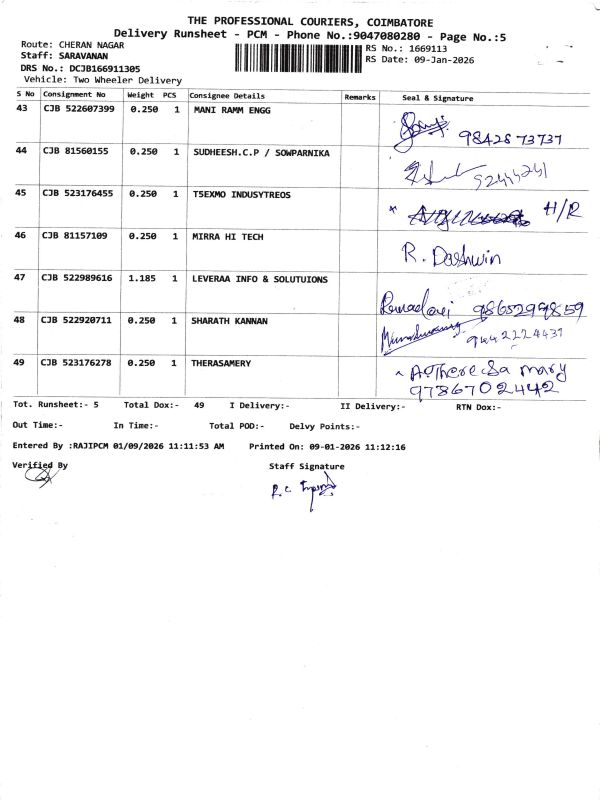 THE PROFESSIONAL COURIERS, COIMBATORE
Delivery Runsheet - PCM - Phone No.:9047080280 - Page No.:5
Route: CHERAN NAGAR
RS No.: 1669113
Staff: SARAVANAN
RS Date: 09-Jan-2026
DRS No.: DCJB166911305
Vehicle: Two Wheeler Delivery
S No Consignment No Weight PCS Consignee Details Remarks Seal & Signature
43 CJB 522607399 0.250 1 MANI RAMM ENGG
9842873737
44 CJB 81560155 0.250 1 SUDHEESH.C.P / SOWPARNIKA
45 CJB 523176455 0.250 1 T5EXMO INDUSYTREOS
H/R
46 CJB 81157109 0.250 1 MIRRA HI TECH
R. Dashwin
47 CJB 522989616 1.185 1 LEVERAA INFO & SOLUTUIONS
9865299859
48 CJB 522920711 0.250 1 SHARATH KANNAN
9442224437
49 CJB 523176278 0.250 1 THERASAMERY
A.Theresa mary
9786702442
Tot. Runsheet:- 5 Total Dox:- 49 I Delivery:- II Delivery:- RTN Dox:-
Out Time:- In Time:- Total POD:- Delvy Points:-
Entered By :RAJIPCM 01/09/2026 11:11:53 AM Printed On: 09-01-2026 11:12:16
Verified By Staff Signature